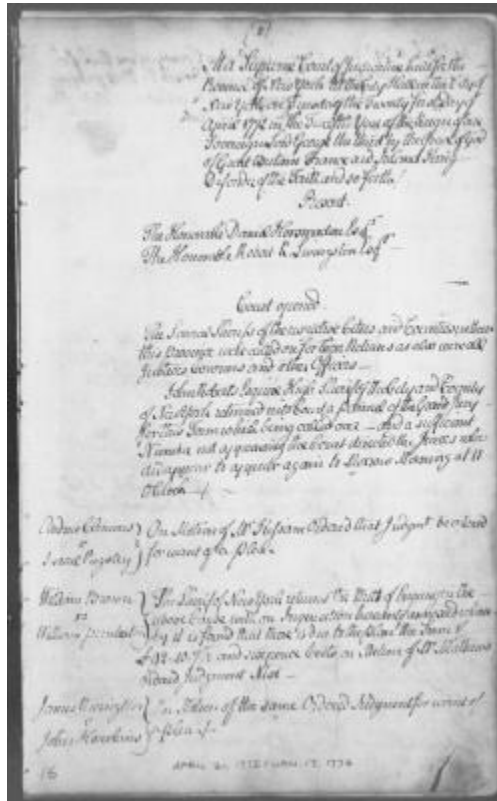 At a Supreme Court of Judicature held for the
Province of New York at the City Hall in the City of
New York on Tuesday the Twenty first day of
April 1772 in the Twelfth Year of the Reign of our
Sovereign Lord George the third by the Grace of God
of Great Britain France and Ireland King
Defender of the Faith and so forth
Present
The Honorable Daniel Horsmanden Esqr
The Honorable Robert R Livingston Esqr
Court opened
The Several Sheriffs of the respective Cities and Counties within
this Province were called on for their Returns as also were all
Justices Coroners and other Officers
John Roberts Esquire High Sheriff of the City and County
of New York returned into Court a pannel of the Grand Jury
for this Term which being called over and a sufficient
Number not appearing the Court directed the Jurors who
did appear to appear again to Morrow Morning at 11
OClock
On Motion of Mr Ordered that Judgmt be entered
for want of a plea
William Brown
vs
William
The Sheriff of New York returns the Writ of Enquiry in the
above Cause with an Inquisition hereunto annexed whereby
it is found that there is due to the plaintiff the Sum of
and sixpence Costs on Motion of Mr
Ordered Judgment Nisi
James
vs
John Hawkins
On Motion of the same Ordered Judgment for want of
a plea
16
APRIL 21, 1772 - JAN. 17, 1776
1